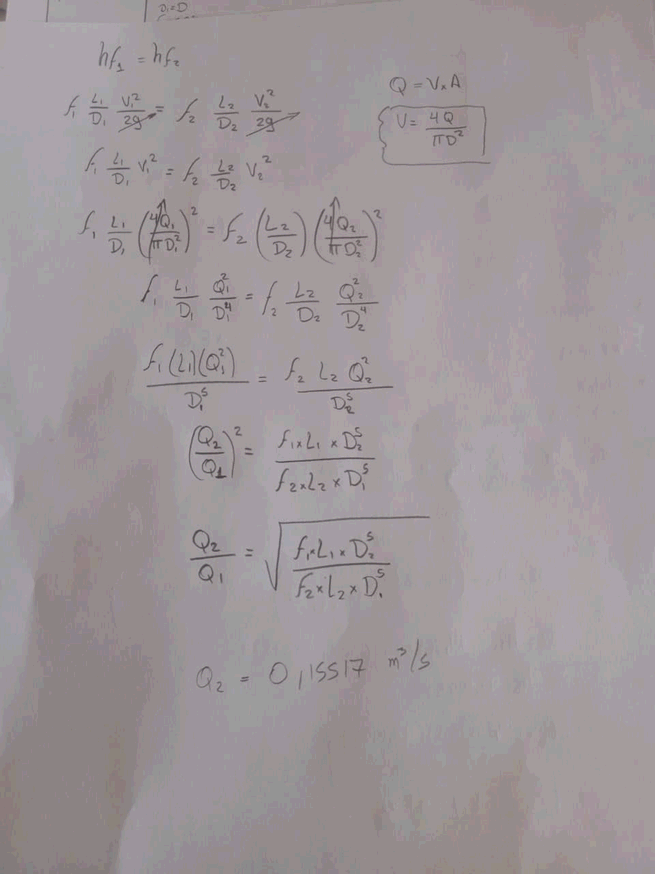 D₁=D
hf₁ = hf₂
Q = V×A
f₁ L₁/D₁ V₁²/2g = f₂ L₂/D₂ V₂²/2g
V = 4Q/πD²
f₁ L₁/D₁ V₁² = f₂ L₂/D₂ V₂²
f₁ L₁/D₁ (4Q₁/πD₁²)² = f₂ (L₂/D₂) (4Q₂/πD₂²)²
f₁ L₁/D₁ Q₁²/D₁⁴ = f₂ L₂/D₂ Q₂²/D₂⁴
f₁(L₁)(Q₁²)/D₁⁵ = f₂ L₂ Q₂²/D₂⁵
(Q₂/Q₁)² = f₁×L₁×D₂⁵/f₂×L₂×D₁⁵
Q₂/Q₁ = √(f₁×L₁×D₂⁵/f₂×L₂×D₁⁵)
Q₂ = 0,15517 m³/s